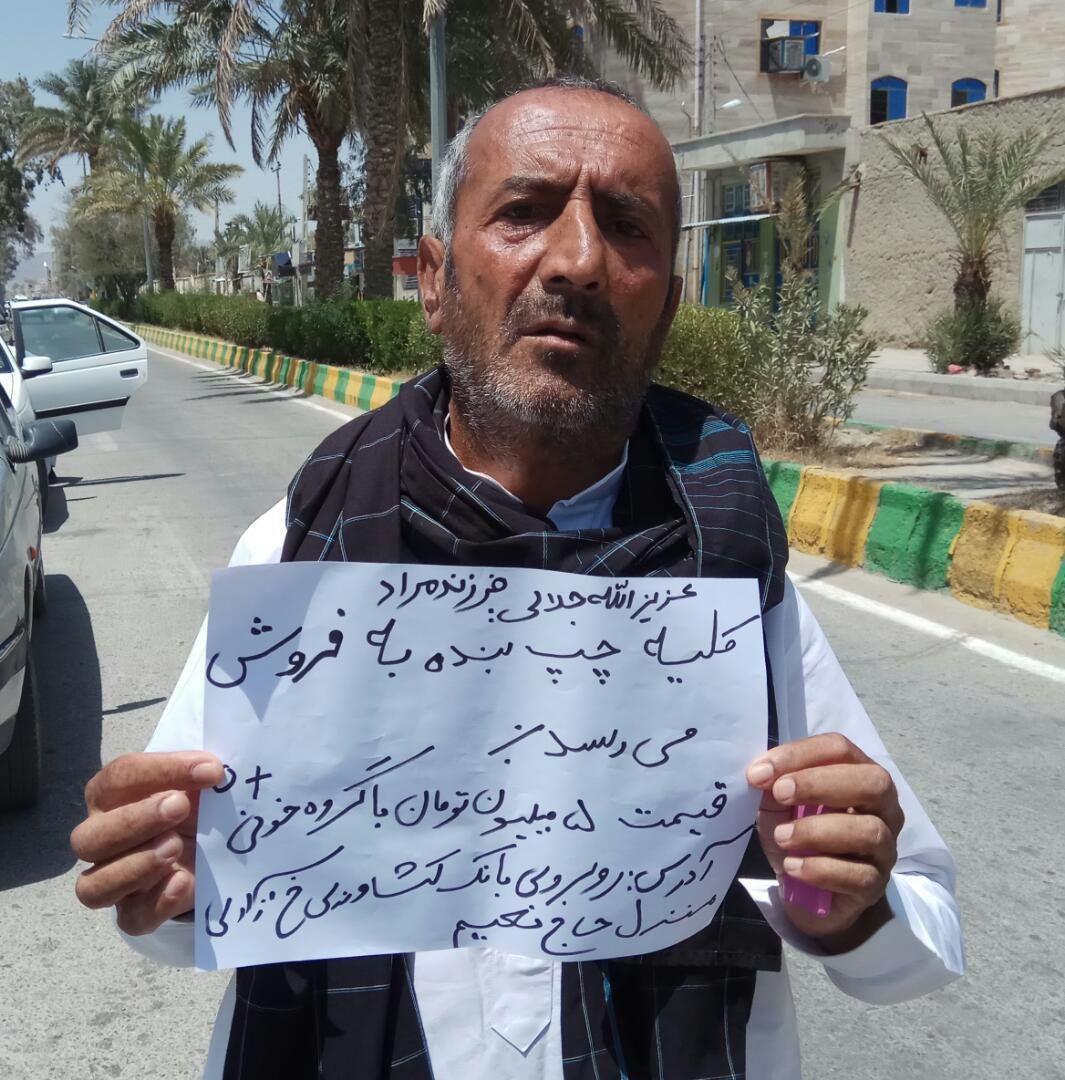 عزیز الله جلالی فرزند مراد
کلیه چپ بنده به فروش
می رسد به
قیمت ۵ میلیون تومان با گروه خونی O+
آدرس: روبروی بانک کشاورزی خ آزادی
منزل حاج نعیم